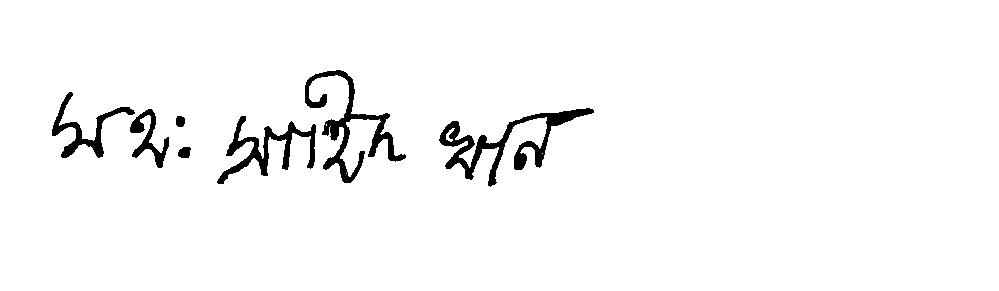 মথ: সাইদ খান